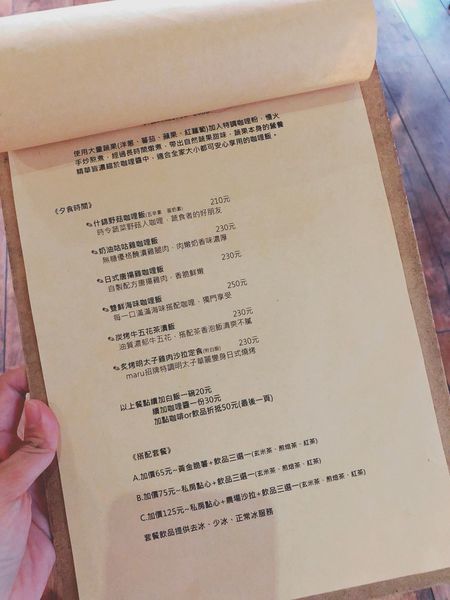 使用大量蔬果(洋蔥、蕃茄、蘋果、紅蘿蔔)加入特調咖哩粉，慢火
手炒熬煮，經過長時間燉煮，帶出自然蔬果甜味，蔬果本身的營養
精華皆濃縮於咖哩醬中，適合全家大小都可安心享用的咖哩飯。
《夕食時間》
什錦野菇咖哩飯(五辛素、蛋奶素) 210元
時令蔬菜野菇入咖哩，蔬食者的好朋友
奶油咕咕雞咖哩飯 230元
無糖優格醃漬雞腿肉，肉嫩奶香味濃厚
日式唐揚雞咖哩飯 230元
自製配方唐揚雞肉，香脆鮮嫩
雙鮮海味咖哩飯 250元
每一口滿滿海味搭配咖哩、獨門享受
炭烤牛五花茶漬飯 230元
油質濃郁牛五花，搭配茶香泡飯清爽不膩
炙烤明太子雞肉沙拉定食(附白飯) 230元
maru招牌特調明太子華麗變身日式燒烤
以上餐點續加白飯一碗20元
續加咖哩醬一份30元
加點咖啡or飲品折抵50元(最後一頁)
《搭配套餐》
A.加價65元~黃金脆薯+飲品三選一(玄米茶、煎焙茶、紅茶)
B.加價75元~私房點心+飲品三選一(玄米茶、煎焙茶、紅茶)
C.加價125元~私房點心+農場沙拉+飲品三選一(玄米茶、煎焙茶、紅茶)
套餐飲品提供去冰、少冰、正常冰服務